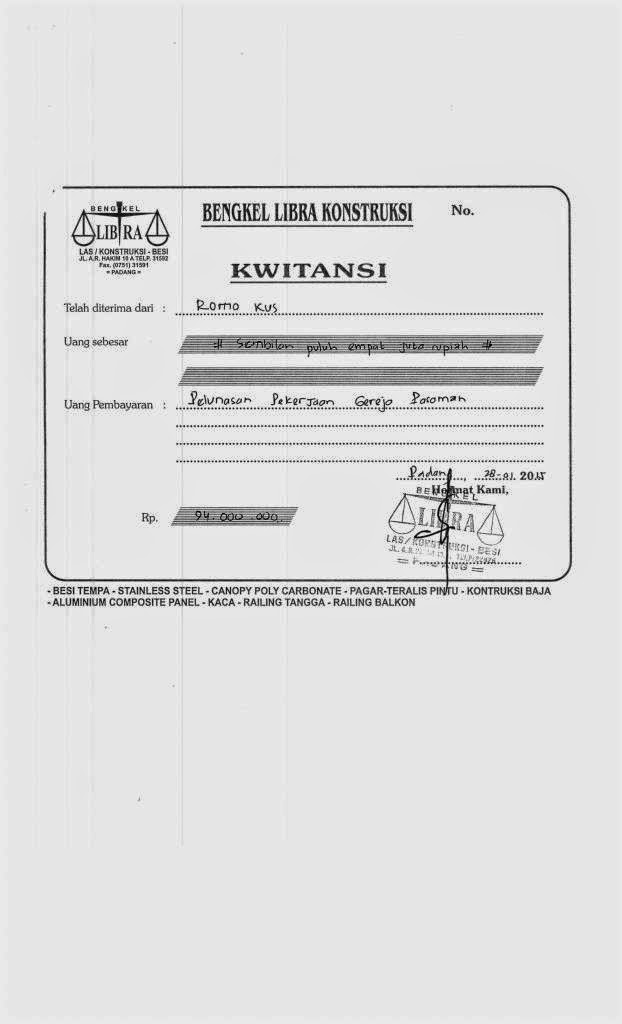 BENGKEL
LIBRA
LAS / KONSTRUKSI - BESI
JL. A.R. HAKIM 10 A TELP. 31592
Fax. (0751) 31591
= PADANG =
BENGKEL LIBRA KONSTRUKSI
No.
KWITANSI
Telah diterima dari : Romo Kus
Uang sebesar # Sembilan puluh empat juta rupiah #
Uang Pembayaran : Pelunasan Pekerjaan Gereja Pasaman
Padang, 28-01 2015
Hormat Kami,
Rp. 94.000.000.
BENGKEL
LIBRA
LAS / KONSTRUKSI - BESI
= PADANG =
- BESI TEMPA - STAINLESS STEEL - CANOPY POLY CARBONATE - PAGAR-TERALIS PINTU - KONTRUKSI BAJA
- ALUMINIUM COMPOSITE PANEL - KACA - RAILING TANGGA - RAILING BALKON